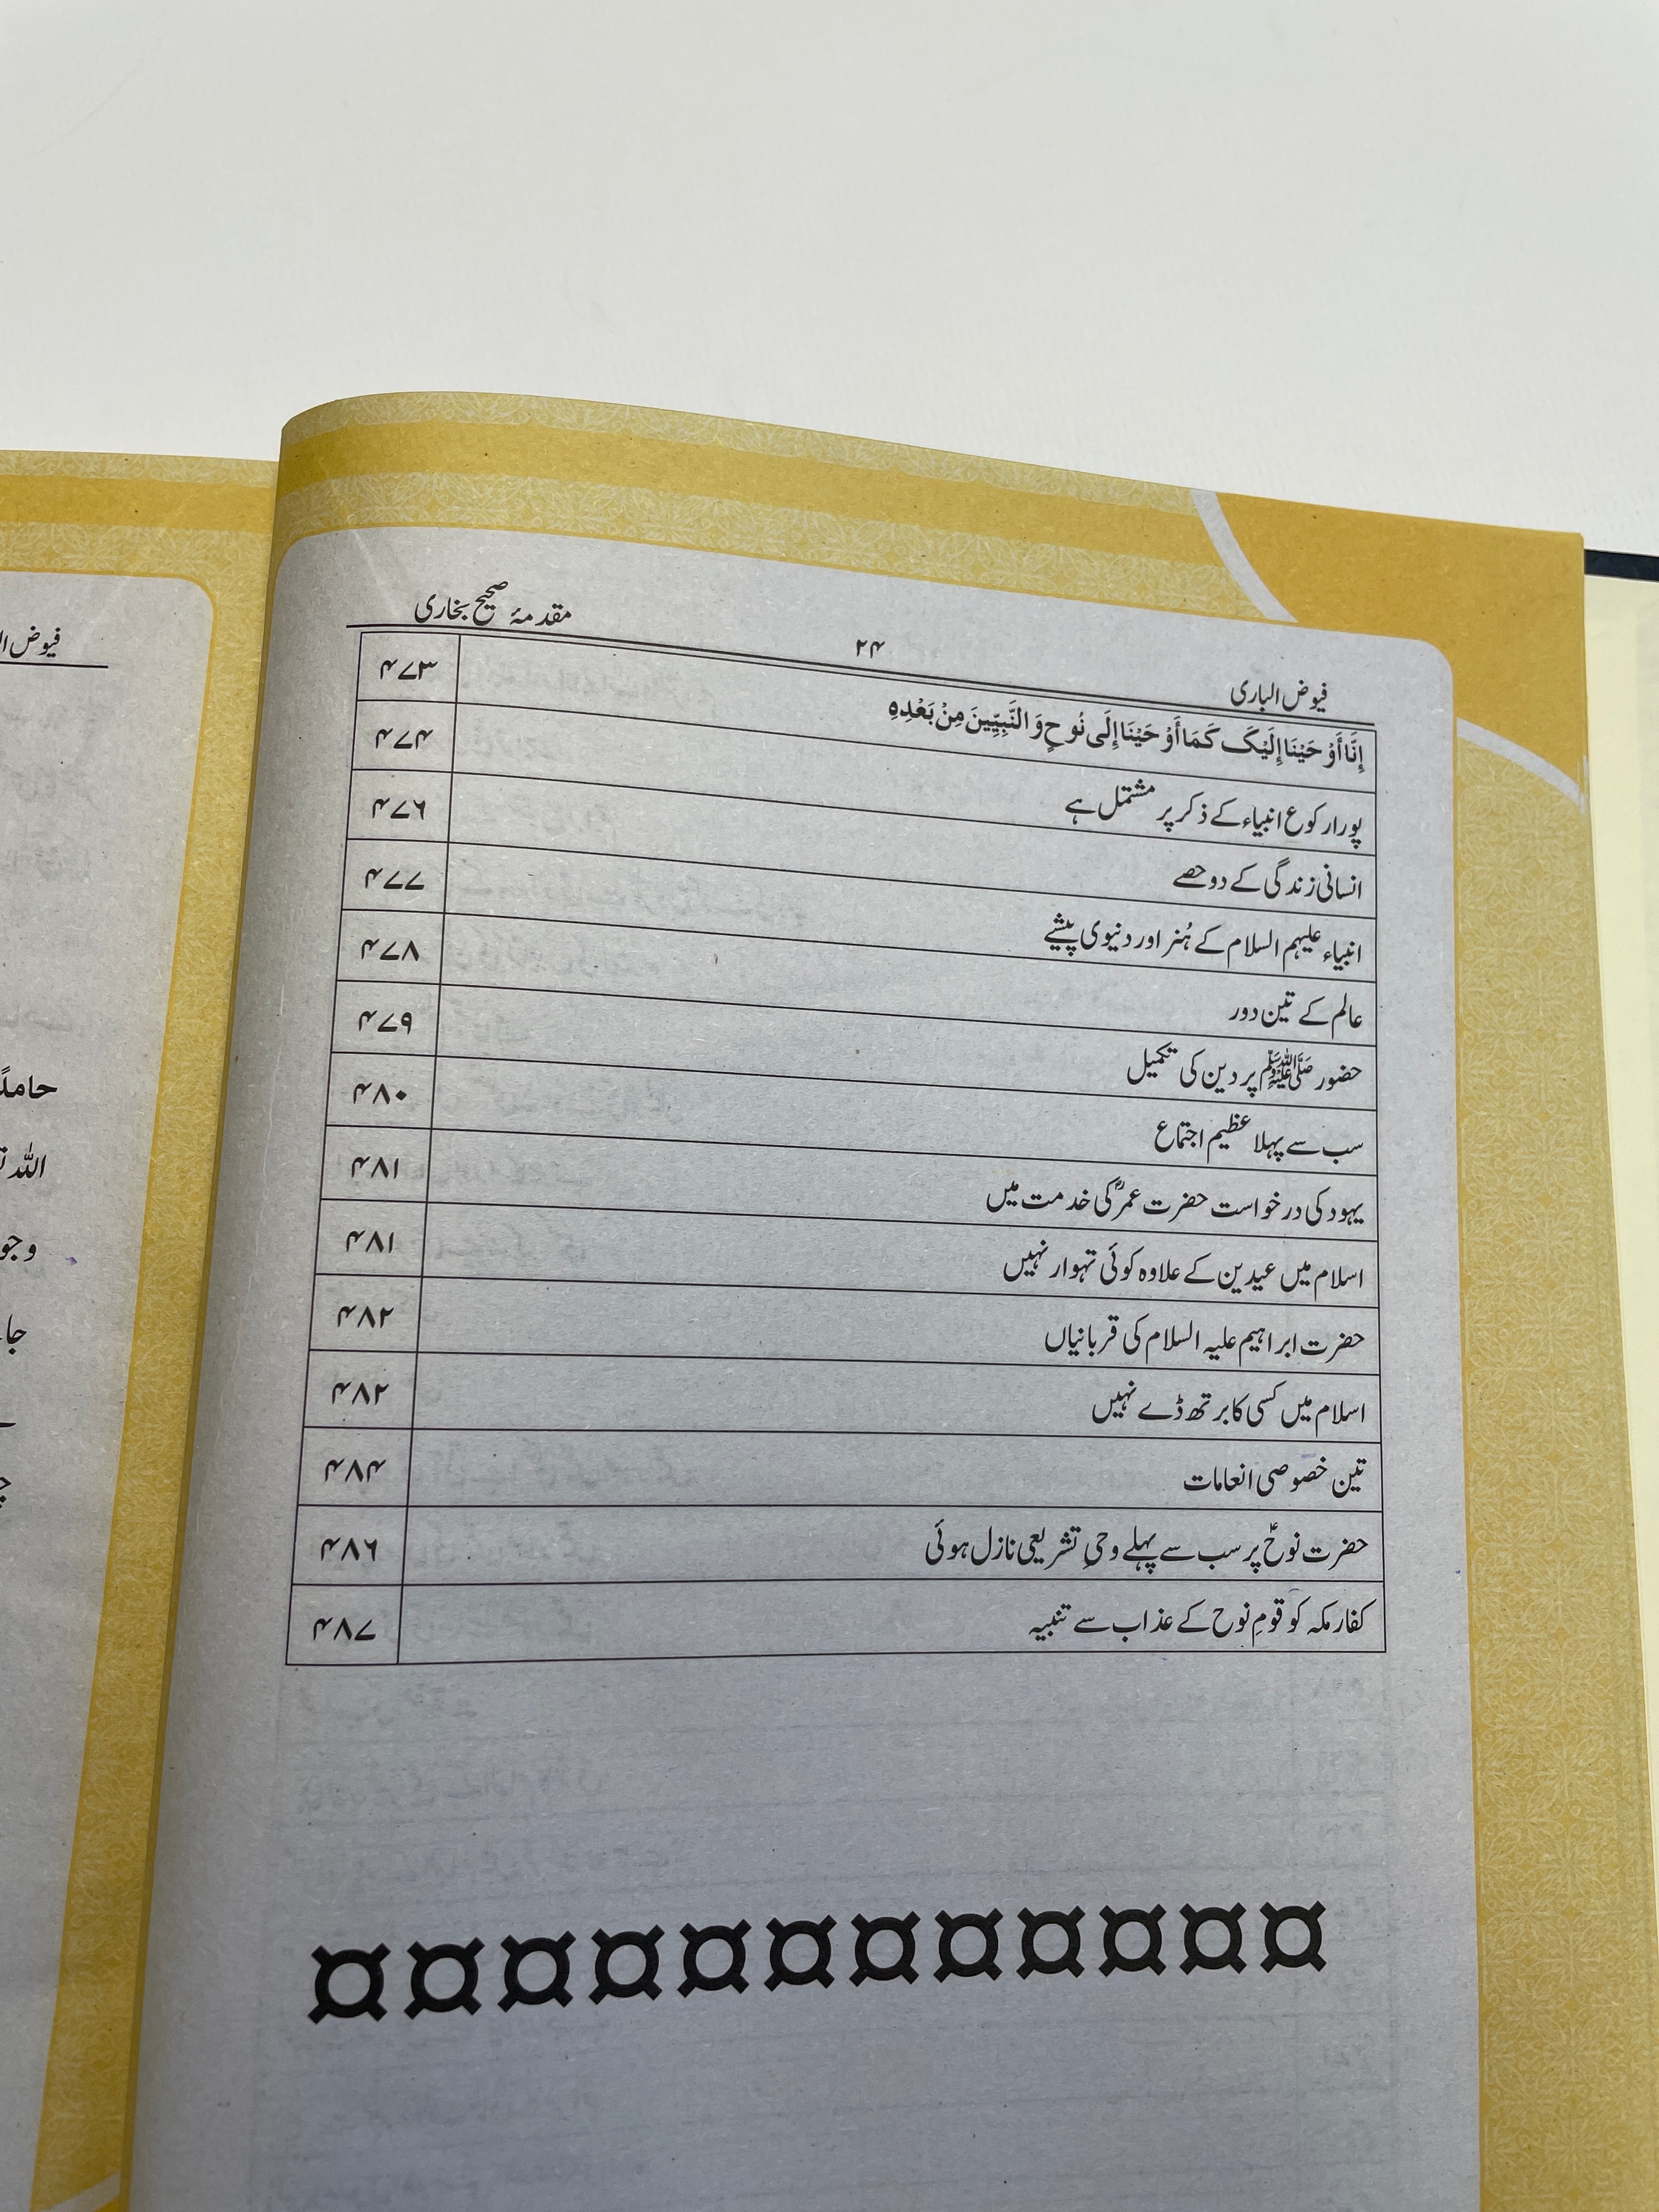 فیوض الباری ۲۴ مقدمۂ صحیح بخاری
إِنَّا أَوْحَيْنَا إِلَيْكَ كَمَا أَوْحَيْنَا إِلَى نُوحٍ وَ النَّبِيِّينَ مِنْ بَعْدِهِ ۴۷۳
پورا رکوع انبیاء کے ذکر پر مشتمل ہے ۴۷۴
انسانی زندگی کے دو حصے ۴۷۶
انبیاء علیہم السلام کے ہُنر اور دنیوی پیشے ۴۷۷
عالم کے تین دور ۴۷۸
حضور ﷺ پر دین کی تکمیل ۴۷۹
سب سے پہلا عظیم اجتماع ۴۸۰
یہود کی درخواست حضرت عمرؓ کی خدمت میں ۴۸۱
اسلام میں عیدین کے علاوہ کوئی تہوار نہیں ۴۸۱
حضرت ابراہیم علیہ السلام کی قربانیاں ۴۸۲
اسلام میں کسی کا برتھ ڈے نہیں ۴۸۲
تین خصوصی انعامات ۴۸۴
حضرت نوحؑ پر سب سے پہلے وحیِ تشریعی نازل ہوئی ۴۸۶
کفار مکہ کو قومِ نوح کے عذاب سے تنبیہ ۴۸۷
فیوض ال
حامدً
اللہ
وجو
جا